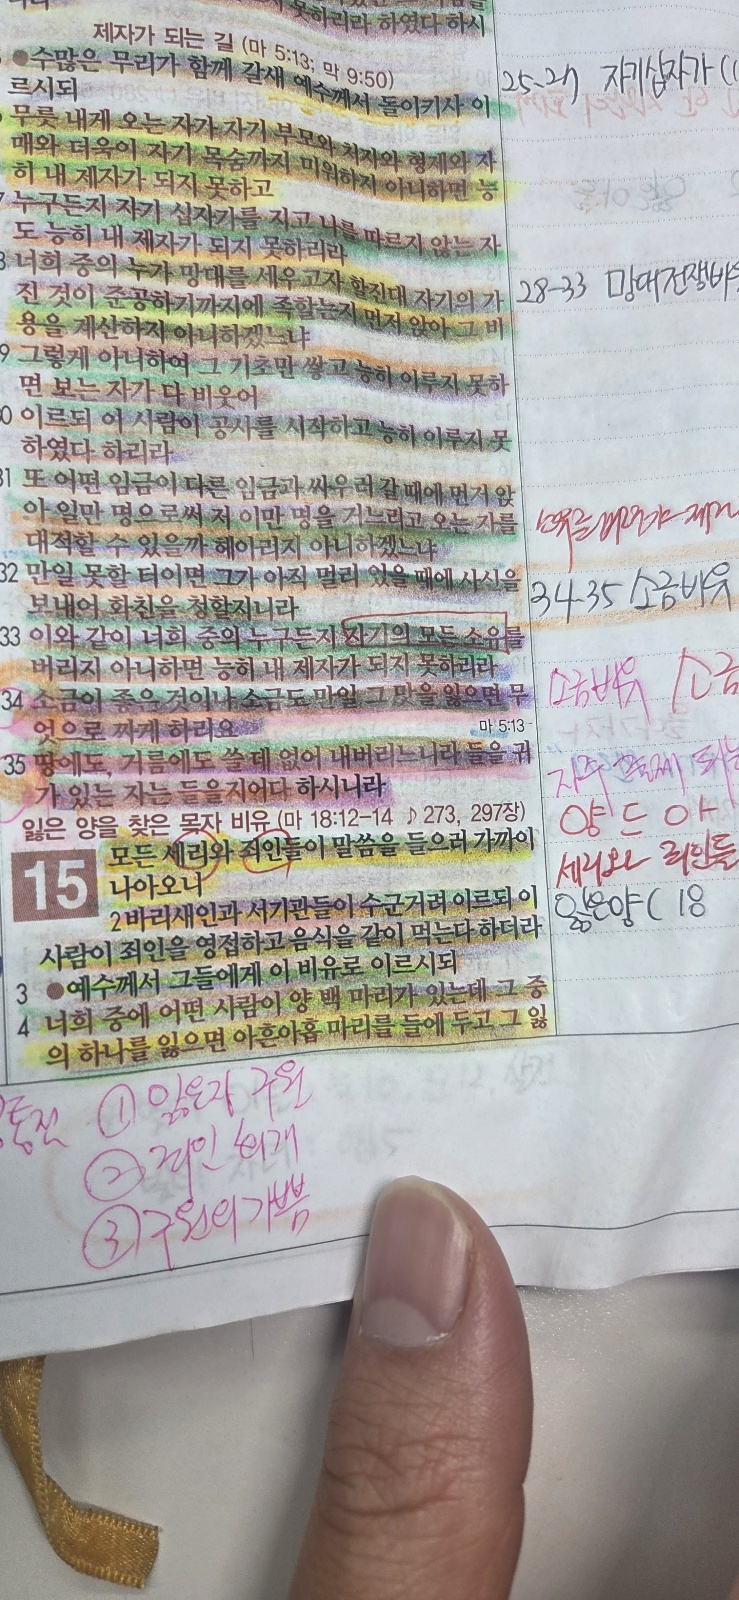 못하리라 하였다 하시
제자가 되는 길 (마 5:13; 막 9:50)
●수많은 무리가 함께 갈새 예수께서 돌이키사 이
르시되
무릇 내게 오는 자가 자기 부모와 처자와 형제와 자
매와 더욱이 자기 목숨까지 미워하지 아니하면 능
히 내 제자가 되지 못하고
7 누구든지 자기 십자가를 지고 나를 따르지 않는 자
도 능히 내 제자가 되지 못하리라
8 너희 중의 누가 망대를 세우고자 할진대 자기의 가
진 것이 준공하기까지에 족할는지 먼저 앉아 그 비
용을 계산하지 아니하겠느냐
9 그렇게 아니하여 그 기초만 쌓고 능히 이루지 못하
면 보는 자가 다 비웃어
30 이르되 이 사람이 공사를 시작하고 능히 이루지 못
하였다 하리라
31 또 어떤 임금이 다른 임금과 싸우러 갈 때에 먼저 앉
아 일만 명으로써 저 이만 명을 거느리고 오는 자를
대적할 수 있을까 헤아리지 아니하겠느냐
32 만일 못할 터이면 그가 아직 멀리 있을 때에 사신을
보내어 화친을 청할지니라
33 이와 같이 너희 중의 누구든지 자기의 모든 소유를
버리지 아니하면 능히 내 제자가 되지 못하리라
34 소금이 좋은 것이나 소금도 만일 그 맛을 잃으면 무
엇으로 짜게 하리요 마 5:13
35 땅에도, 거름에도 쓸 데 없어 내버리느니라 들을 귀
가 있는 자는 들을지어다 하시니라
잃은 양을 찾은 목자 비유 (마 18:12-14 ♪273, 297장)
15 모든 세리와 죄인들이 말씀을 들으러 가까이
나아오니
2 바리새인과 서기관들이 수군거려 이르되 이
사람이 죄인을 영접하고 음식을 같이 먹는다 하더라
3 ●예수께서 그들에게 이 비유로 이르시되
4 너희 중에 어떤 사람이 양 백 마리가 있는데 그 중
의 하나를 잃으면 아흔아홉 마리를 들에 두고 그 잃
25-27 자기십자가 (1
28-33 망대전쟁비유
34-35 소금비유
소금비유 소금
양 드 아
세리와 죄인들
잃은양 ( 18
공통점 ① 잃은자 구원
② 죄인 회개
③ 구원의 기쁨